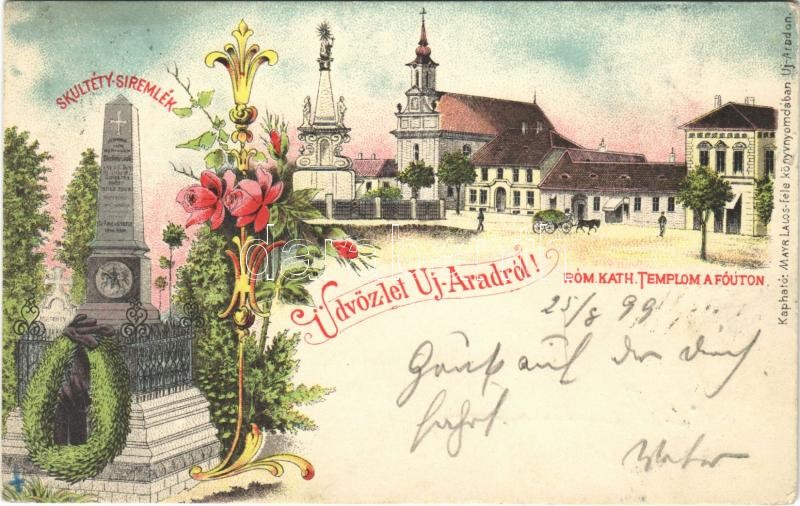 SKULTÉTY-SIREMLÉK
Üdvözlet Uj-Aradról!
RÓM. KATH. TEMPLOM A FŐUTON.
Kapható: MAYR LAJOS-féle könyvnyomdában Uj-Aradon.
25/8 99
Gruß auf der durch
fahrt.
darabanth